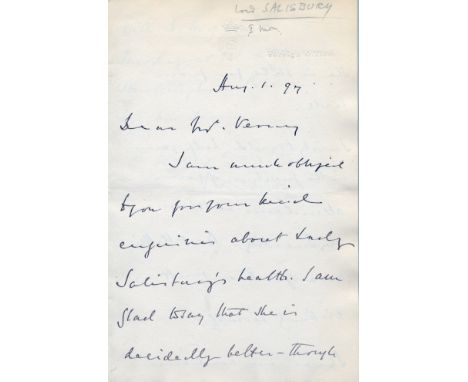 Lord SALISBURY
Aug. 1. 97.
Dear Mr. Verney
I am much obliged
to you for your kind
enquiries about Lady
Salisbury's health. I am
glad to say that she is
decidedly better – though